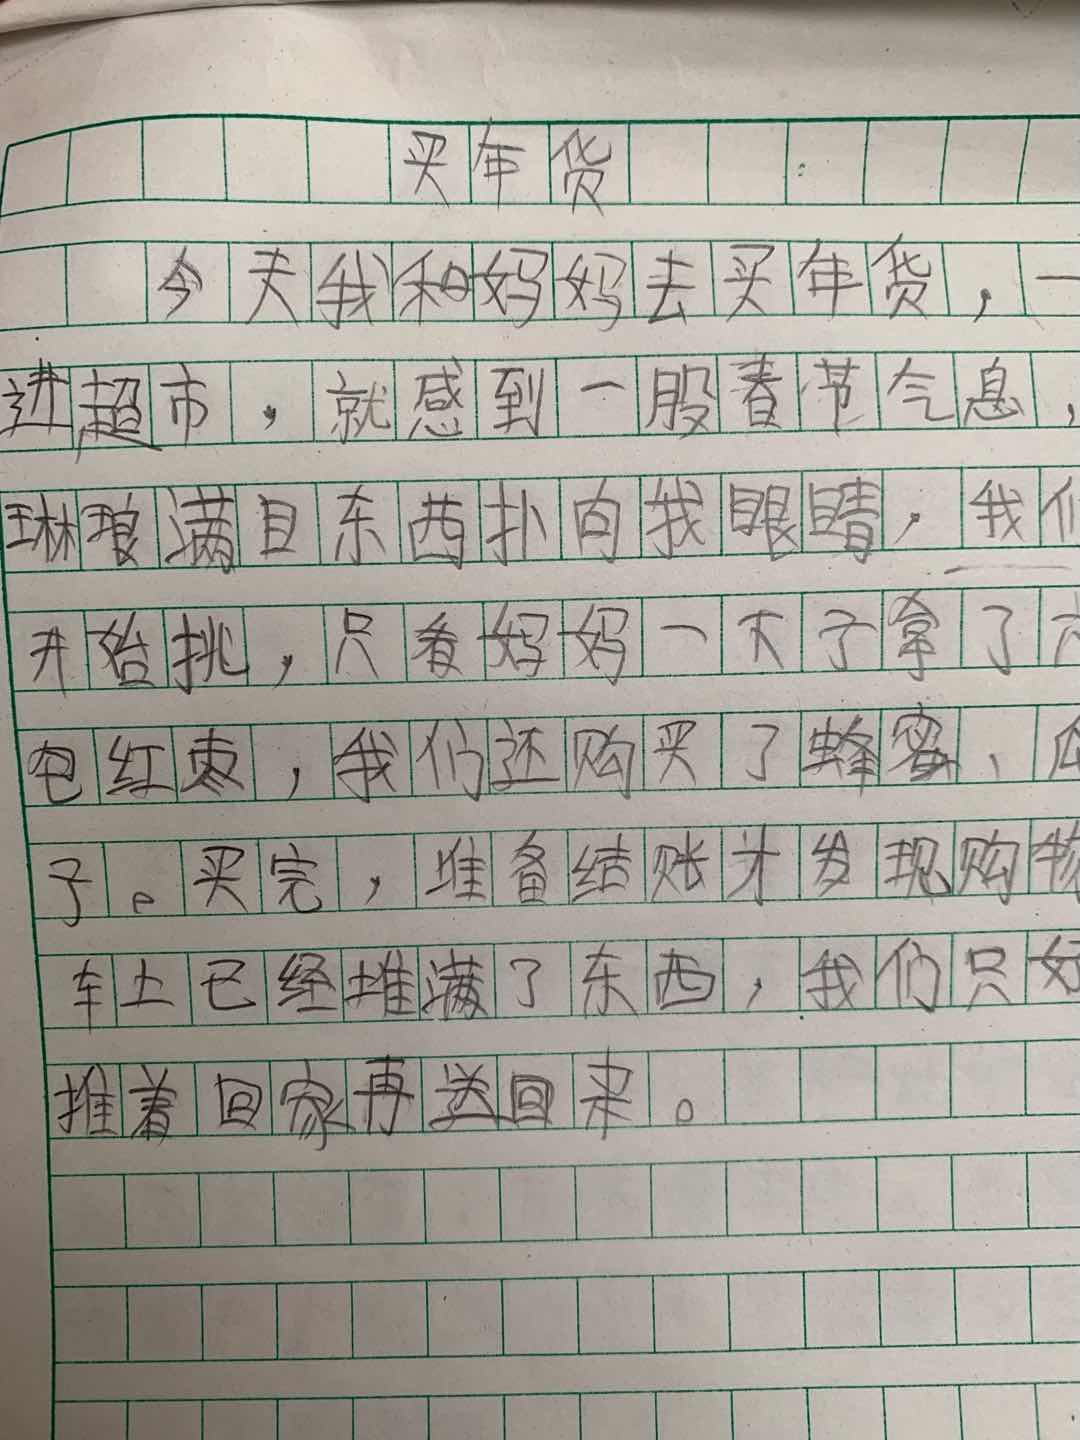 买年货
今天我和妈妈去买年货，一
进超市，就感到一股春节气息，
琳琅满目东西扑向我眼睛，我们
开始挑，只看妈妈一下子拿了
包红枣，我们还购买了蜂蜜、瓜
子。买完，准备结账才发现购物
车上已经堆满了东西，我们只好
推着回家再送回来。